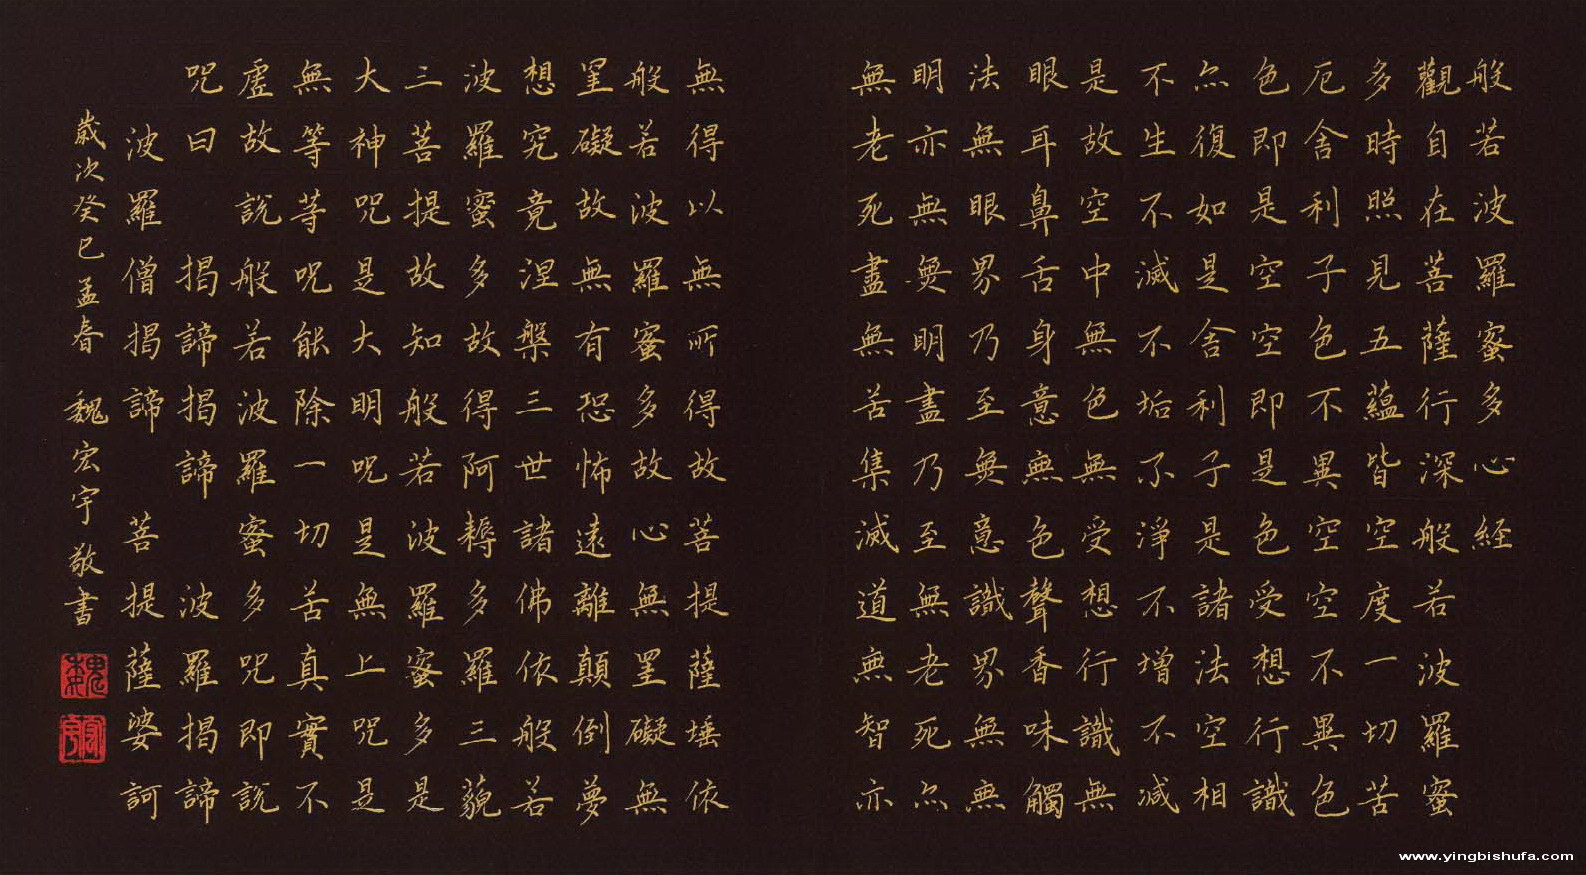 般若波羅蜜多心経
觀自在菩薩行深般若波羅蜜
多時照見五蘊皆空度一切苦
厄舍利子色不異空空不異色
色即是空空即是色受想行識
亦復如是舍利子是諸法空相
不生不滅不垢不淨不增不減
是故空中無色無受想行識無
眼耳鼻舌身意無色聲香味觸
法無眼界乃至無意識界無無
明亦無無明盡乃至無老死亦
無老死盡無苦集滅道無智亦
無得以無所得故菩提薩埵依
般若波羅蜜多故心無罣礙無
罣礙故無有恐怖遠離顛倒夢
想究竟涅槃三世諸佛依般若
波羅蜜多故得阿耨多羅三藐
三菩提故知般若波羅蜜多是
大神咒是大明咒是無上咒是
無等等咒能除一切苦真實不
虛故說般若波羅蜜多咒即說
咒曰 揭諦揭諦 波羅揭諦
波羅僧揭諦 菩提薩婆訶
歲次癸巳孟春 魏宏宇敬書
魏
www.yingbishufa.com